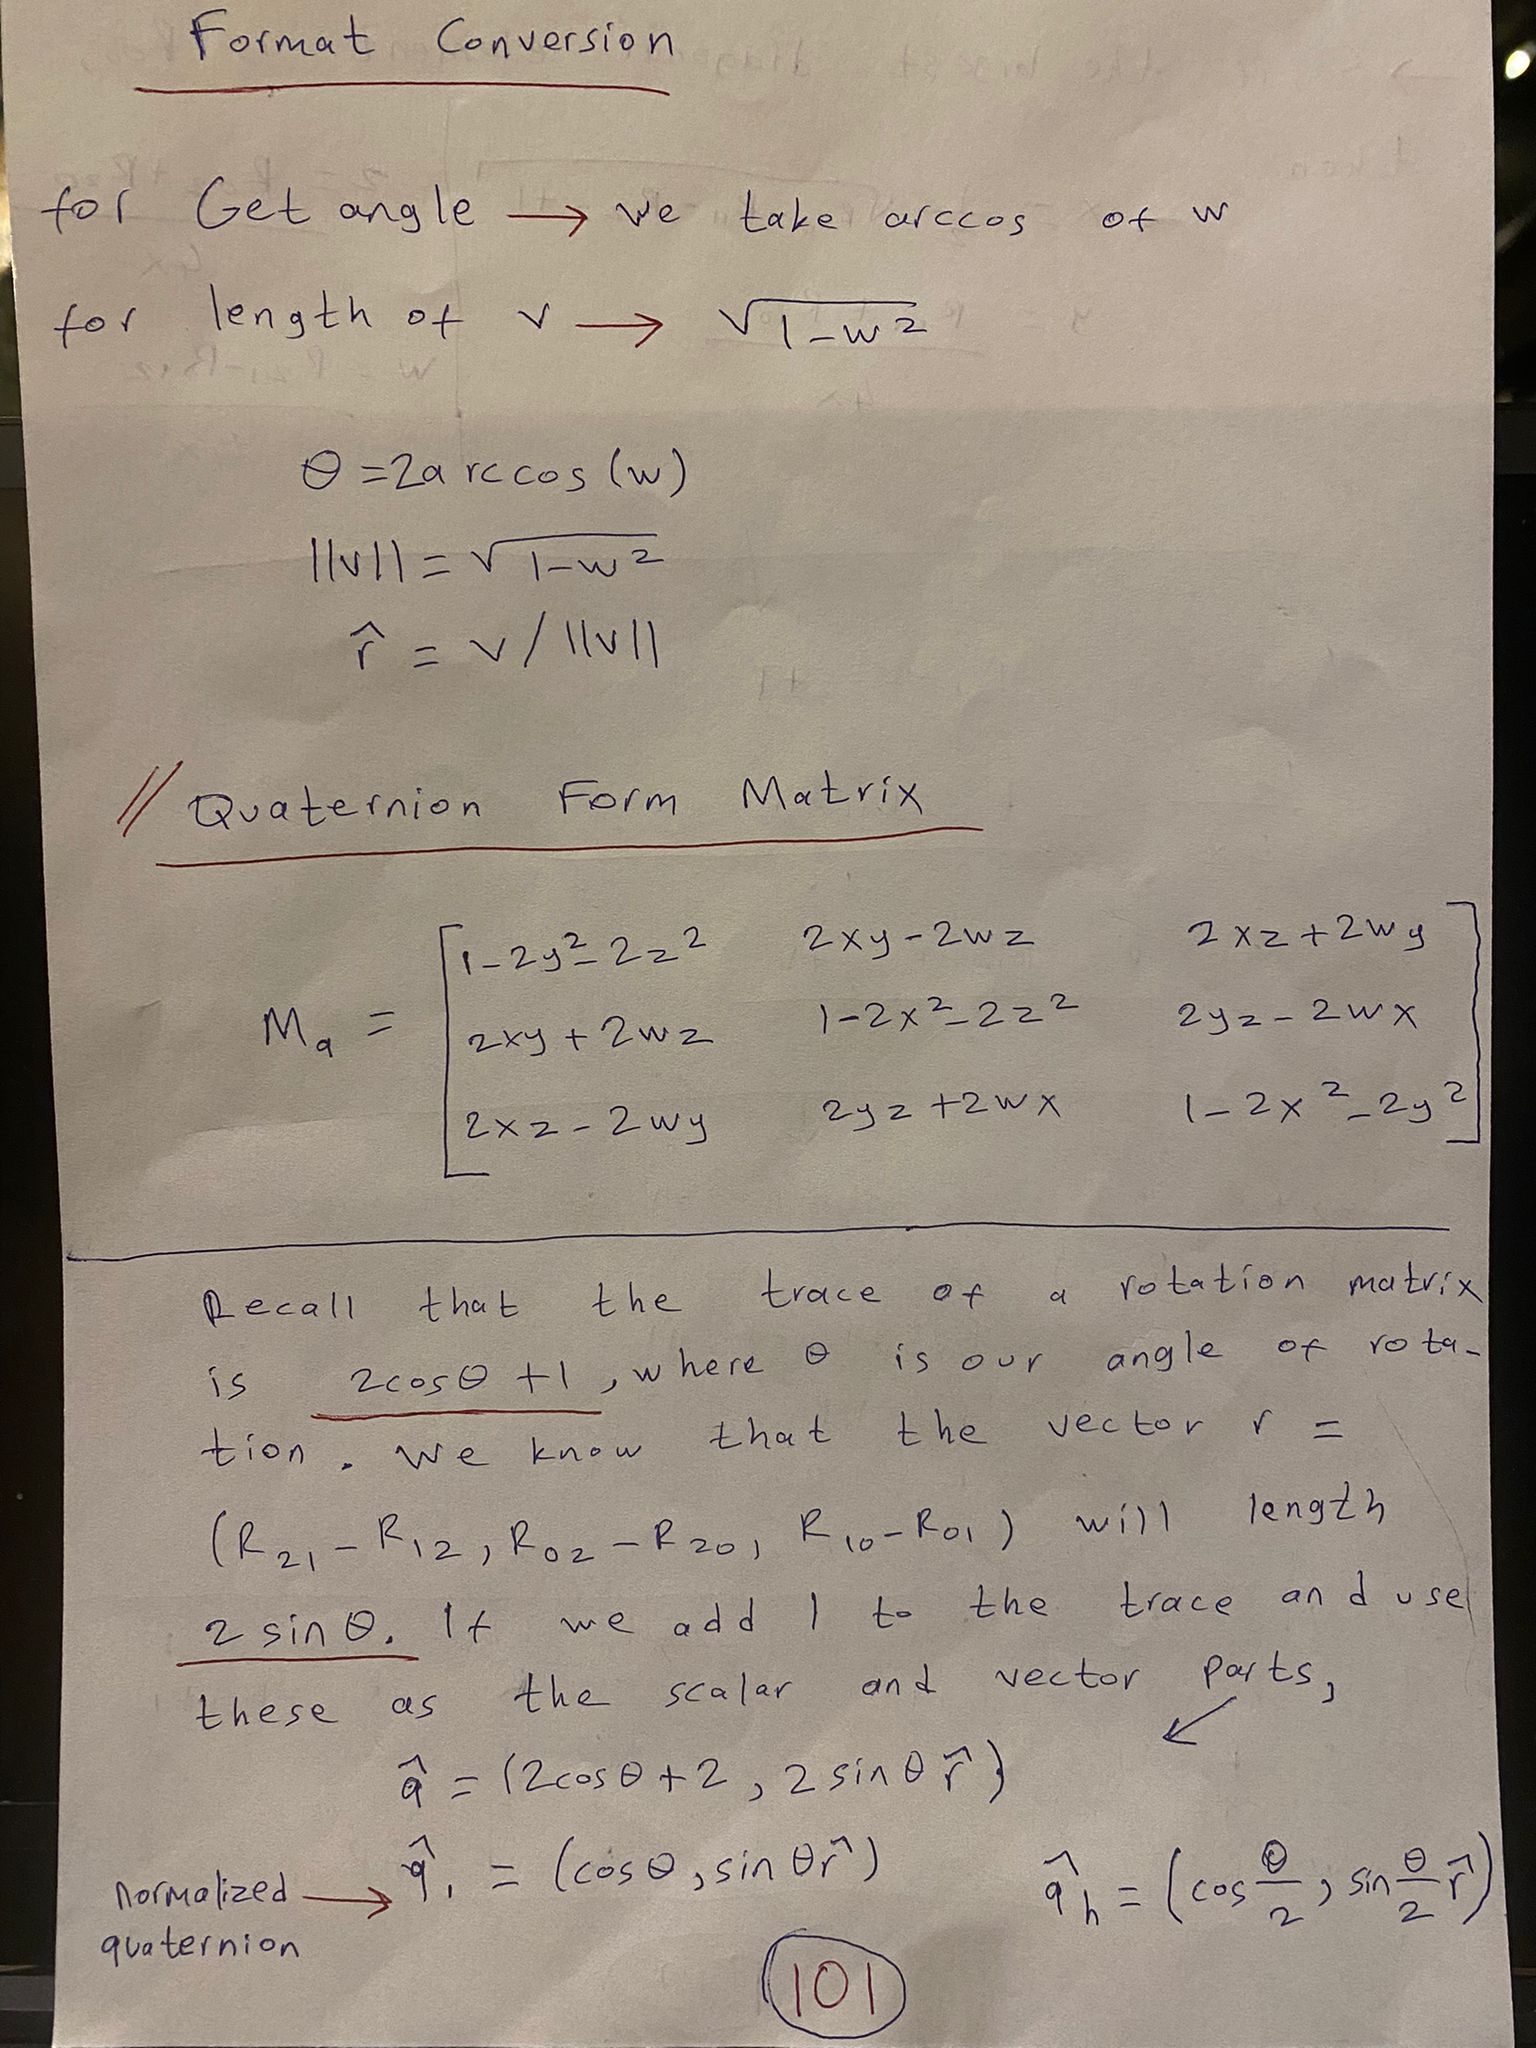 Format Conversion
for Get angle → we take arccos of w
for length of v → √1-w²
θ = 2arccos(w)
||v|| = √1-w²
r̂ = v/||v||
// Quaternion Form Matrix
M_q = [ 1-2y²-2z² 2xy-2wz 2xz+2wy
2xy+2wz 1-2x²-2z² 2yz-2wx
2xz-2wy 2yz+2wx 1-2x²-2y² ]
Recall that the trace of a rotation matrix
is 2cosθ+1, where θ is our angle of rota-
tion. We know that the vector r =
(R₂₁-R₁₂, R₀₂-R₂₀, R₁₀-R₀₁) will length
2 sinθ. If we add 1 to the trace and use
these as the scalar and vector parts,
q̂ = (2cosθ+2, 2sinθ r̂)
normalized → q̂₁ = (cosθ, sinθ r̂) q̂h = (cos θ/2, sin θ/2 r̂)
quaternion
101